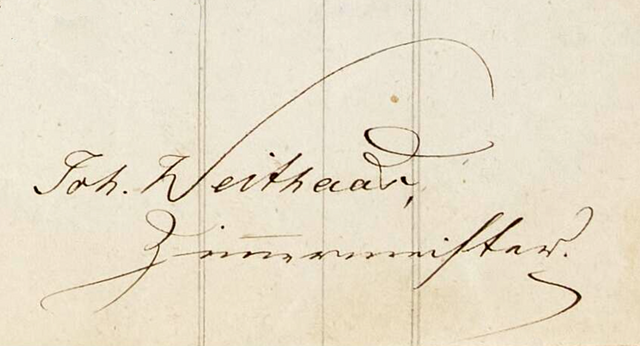 Joh. Weithaas,
Zim̄ermeister.